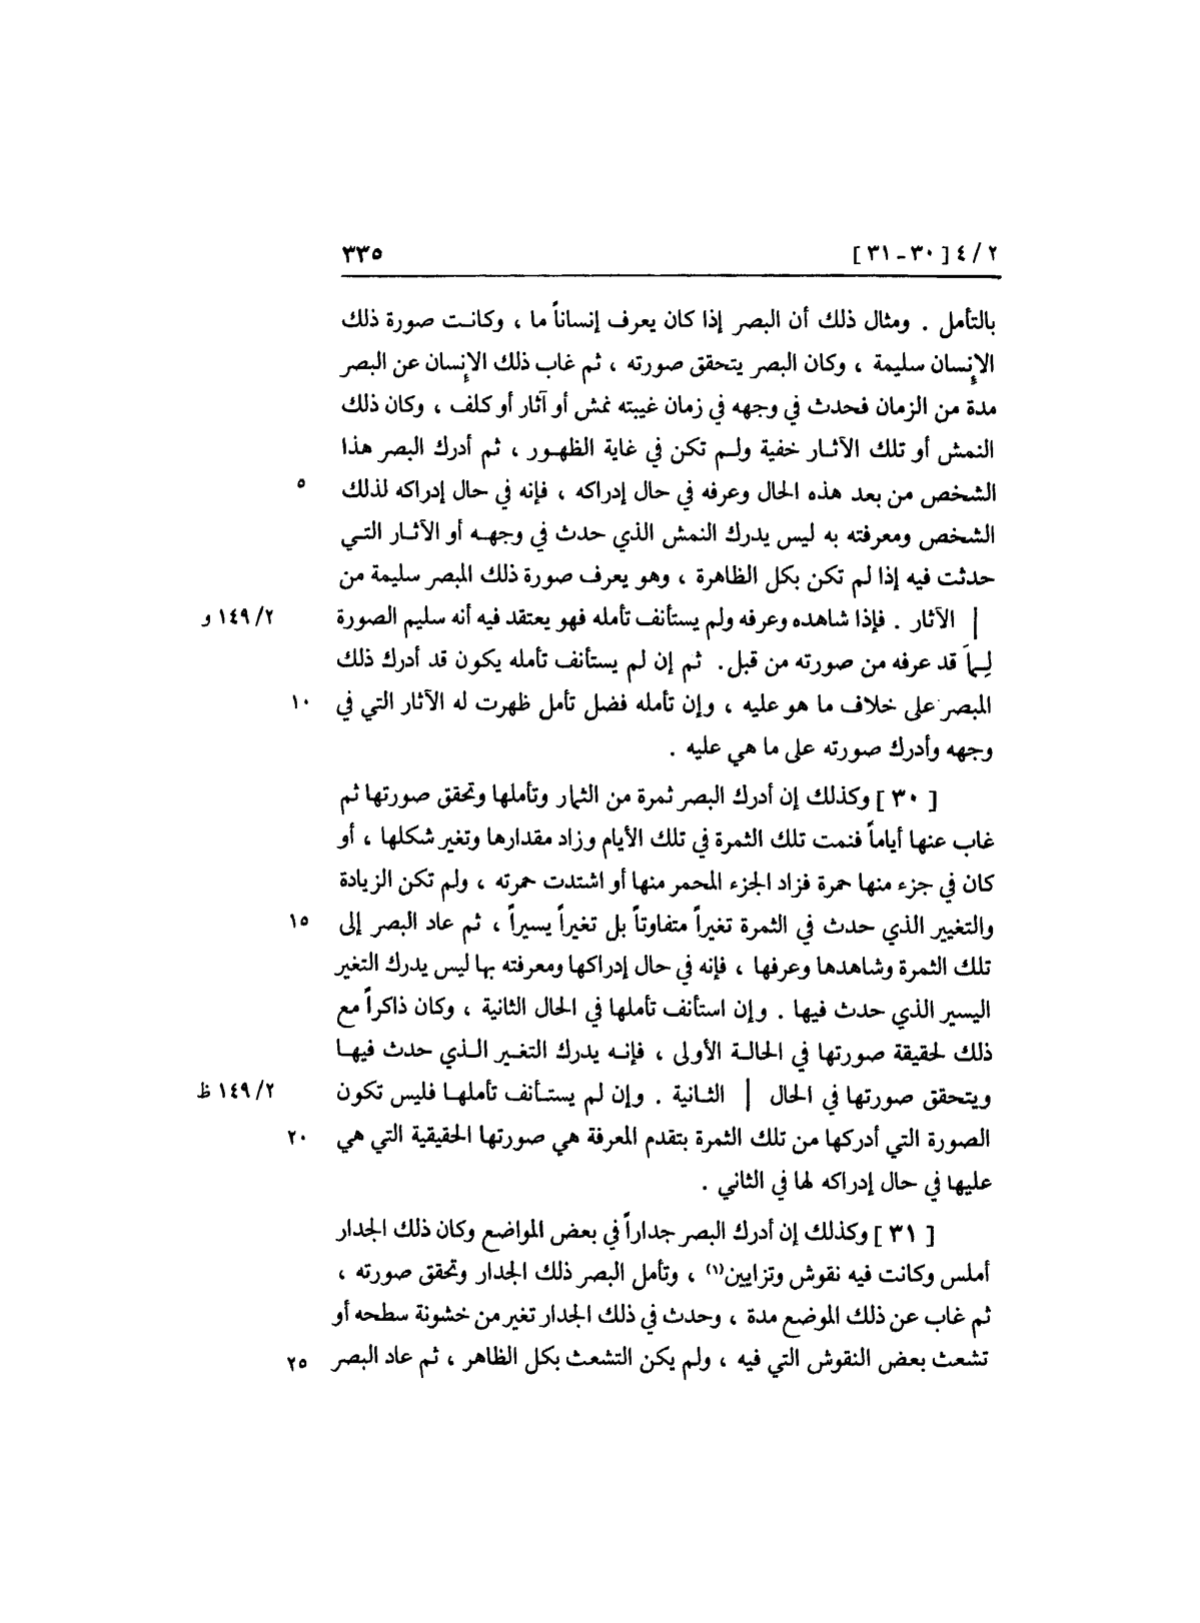 ٢ / ٤ [ ٣٠ - ٣١ ] ٣٣٥
بالتأمل . ومثال ذلك أن البصر إذا كان يعرف إنساناً ما ، وكانت صورة ذلك
الإنسان سليمة ، وكان البصر يتحقق صورته ، ثم غاب ذلك الإنسان عن البصر
مدة من الزمان فحدث في وجهه في زمان غيبته نمش أو آثار أو كلف ، وكان ذلك
النمش أو تلك الآثار خفية ولم تكن في غاية الظهور ، ثم أدرك البصر هذا
الشخص من بعد هذه الحال وعرفه في حال إدراكه ، فإنه في حال إدراكه لذلك ٥
الشخص ومعرفته به ليس يدرك النمش الذي حدث في وجهه أو الآثار التي
حدثت فيه إذا لم تكن بكل الظاهرة ، وهو يعرف صورة ذلك المبصر سليمة من
| الآثار . فإذا شاهده وعرفه ولم يستأنف تأمله فهو يعتقد فيه أنه سليم الصورة ٢/ ١٤٩ و
لِمَا قد عرفه من صورته من قبل. ثم إن لم يستأنف تأمله يكون قد أدرك ذلك
المبصر على خلاف ما هو عليه ، وإن تأمله فضل تأمل ظهرت له الآثار التي في ١٠
وجهه وأدرك صورته على ما هي عليه .
[ ٣٠ ] وكذلك إن أدرك البصر ثمرة من الثمار وتأملها وتحقق صورتها ثم
غاب عنها أياماً فنمت تلك الثمرة في تلك الأيام وزاد مقدارها وتغير شكلها ، أو
كان في جزء منها حمرة فزاد الجزء المحمر منها أو اشتدت حمرته ، ولم تكن الزيادة
والتغيير الذي حدث في الثمرة تغيراً متفاوتاً بل تغيراً يسيراً ، ثم عاد البصر إلى ١٥
تلك الثمرة وشاهدها وعرفها ، فإنه في حال إدراكها ومعرفته بها ليس يدرك التغير
اليسير الذي حدث فيها . وإن استأنف تأملها في الحال الثانية ، وكان ذاكراً مع
ذلك لحقيقة صورتها في الحالة الأولى ، فإنه يدرك التغير الذي حدث فيها
ويتحقق صورتها في الحال | الثانية . وإن لم يستأنف تأملها فليس تكون ٢/ ١٤٩ ظ
الصورة التي أدركها من تلك الثمرة بتقدم المعرفة هي صورتها الحقيقية التي هي ٢٠
عليها في حال إدراكه لها في الثاني .
[ ٣١ ] وكذلك إن أدرك البصر جداراً في بعض المواضع وكان ذلك الجدار
أملس وكانت فيه نقوش وتزايين(١) ، وتأمل البصر ذلك الجدار وتحقق صورته ،
ثم غاب عن ذلك الموضع مدة ، وحدث في ذلك الجدار تغير من خشونة سطحه أو
تشعث بعض النقوش التي فيه ، ولم يكن التشعث بكل الظاهر ، ثم عاد البصر ٢٥